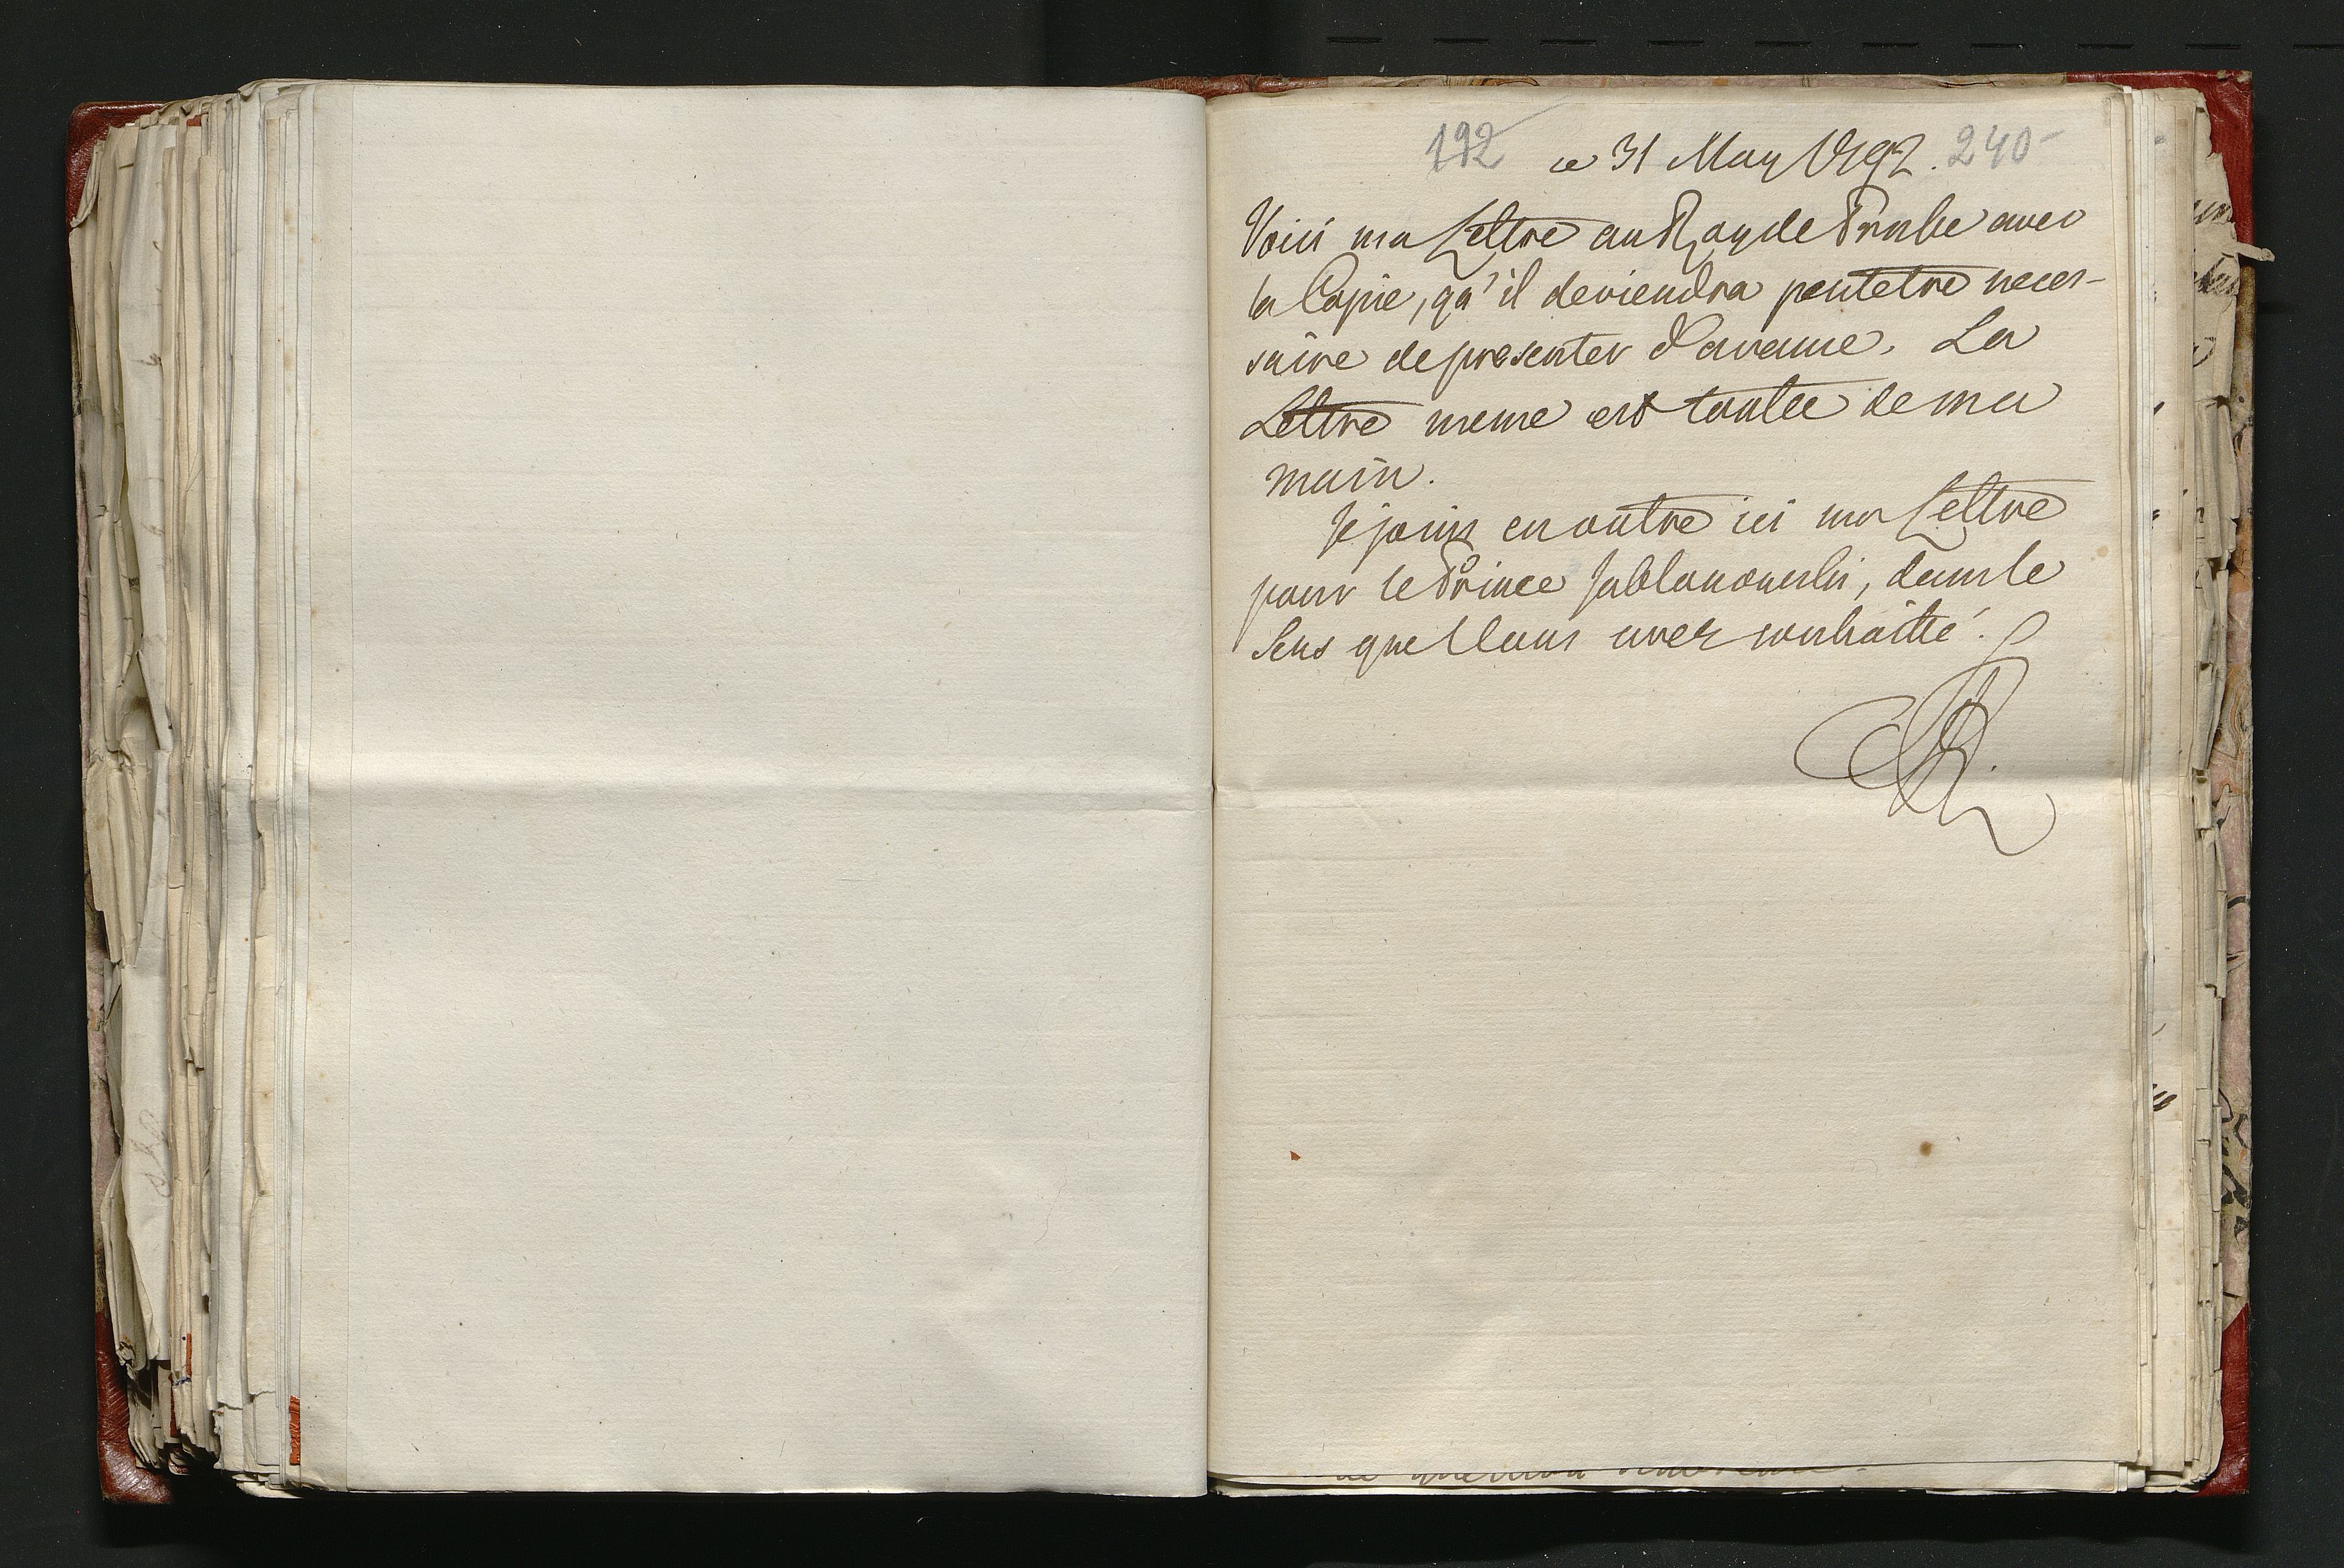 192 ce 31 May 1792. 240
Voici ma Lettre au Roy de Prusse avec
la Copie, qu'il deviendra peutetre neces-
saire de presenter d'avance. La
Lettre meme est toutte de ma
main.
Je joins en outre ici ma Lettre
pour le Prince Jablonowski, dans le
Sens que Vous avez souhaitté.
SAR.